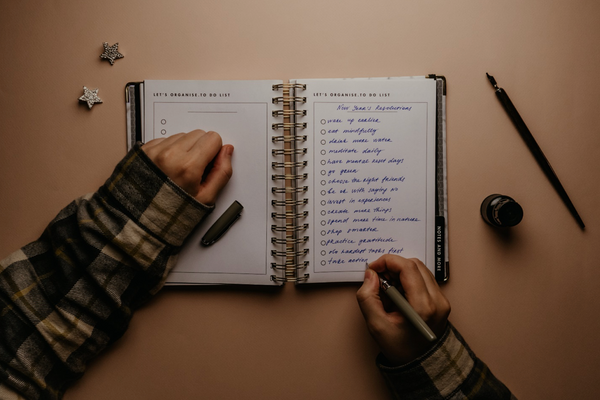 LET'S ORGANISE.TO DO LIST
LET'S ORGANISE.TO DO LIST
New Year's Resolutions
wake up earlier
eat mindfully
drink more water
meditate daily
have mental rest days
go green
choose the right friends
be ok with saying no
invest in experiences
create more things
spend more time in nature
shop smarter
practice gratitude
do hardest tasks first
take
NOTES AND MORE